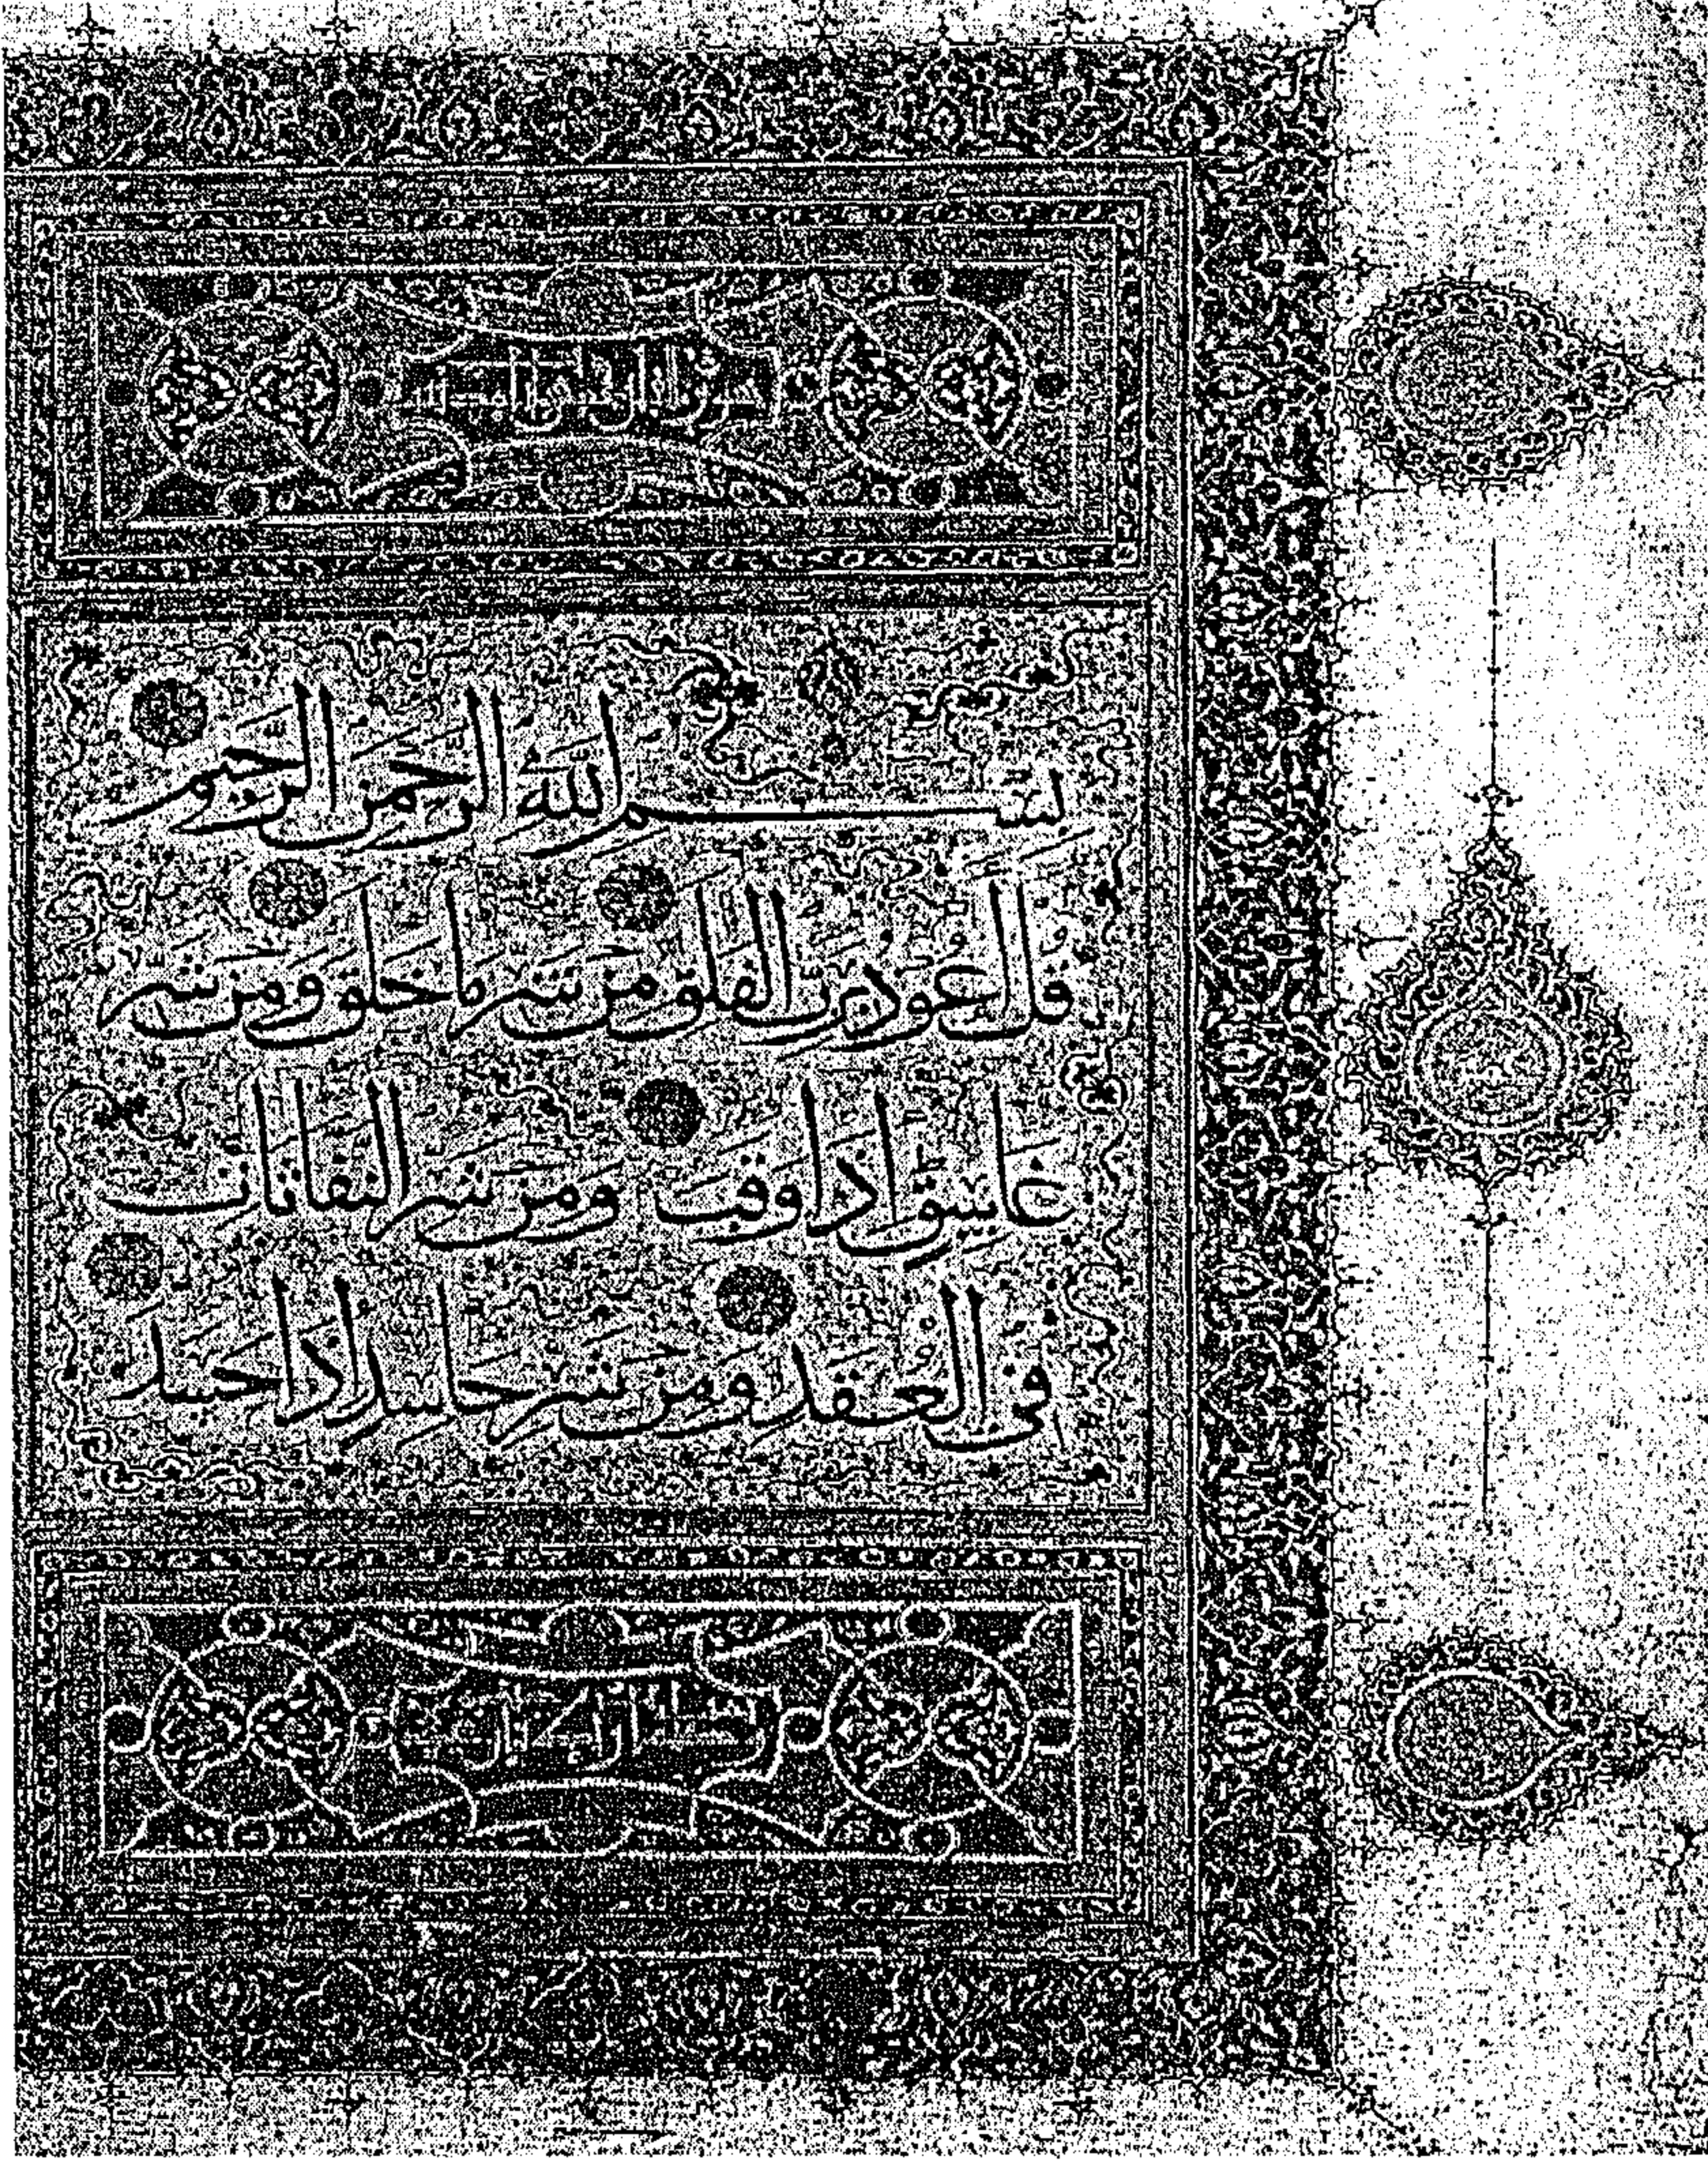 بسم الله الرحمن الرحيم
قل اعوذ برب الفلق من شر ما خلق ومن شر
غاسق اذا وقب ومن شر النفاثات
فى العقد ومن شر حاسد اذا حسد